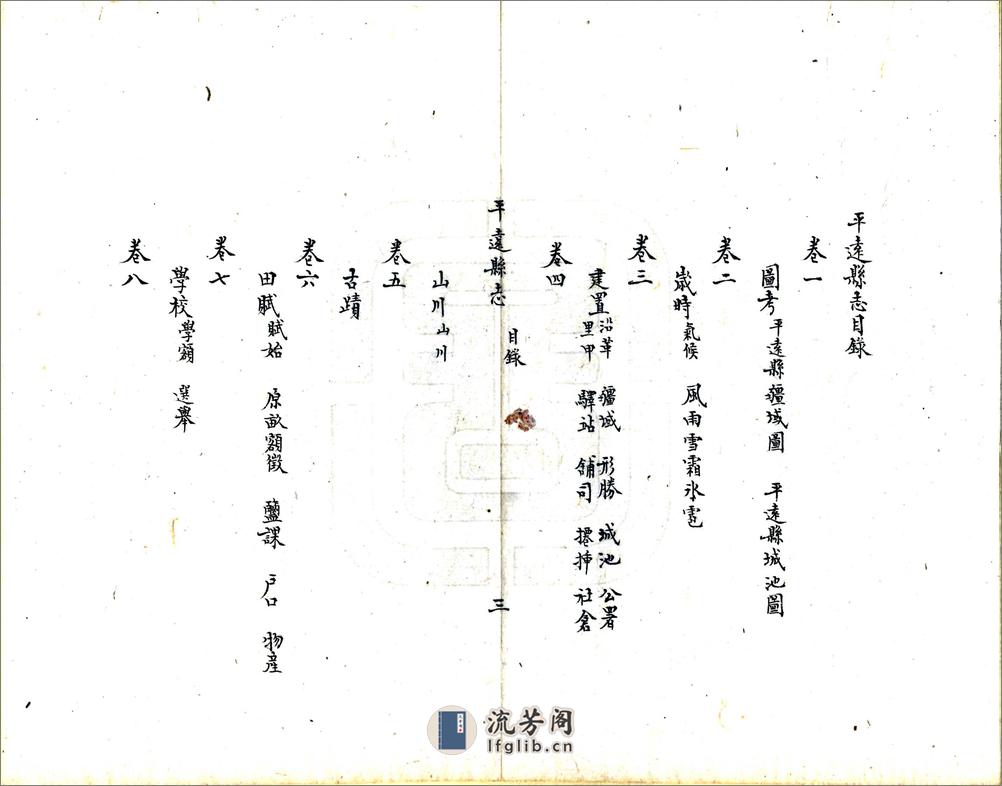 平遠縣志目錄
卷一
圖考 平遠縣疆域圖 平遠縣城池圖
卷二
歲時 氣候 風雨雪霜氷雹
卷三
建置 沿革 疆域 形勝 城池 公署
里甲 驛站 舖司 社倉
卷四
平遠縣志
目錄
三
山川 山川
卷五
古蹟
卷六
田賦 賦始 原畝額徵 鹽課 戶口 物產
卷七
學校 學額 選舉
卷八
流芳阁
lfglib.cn